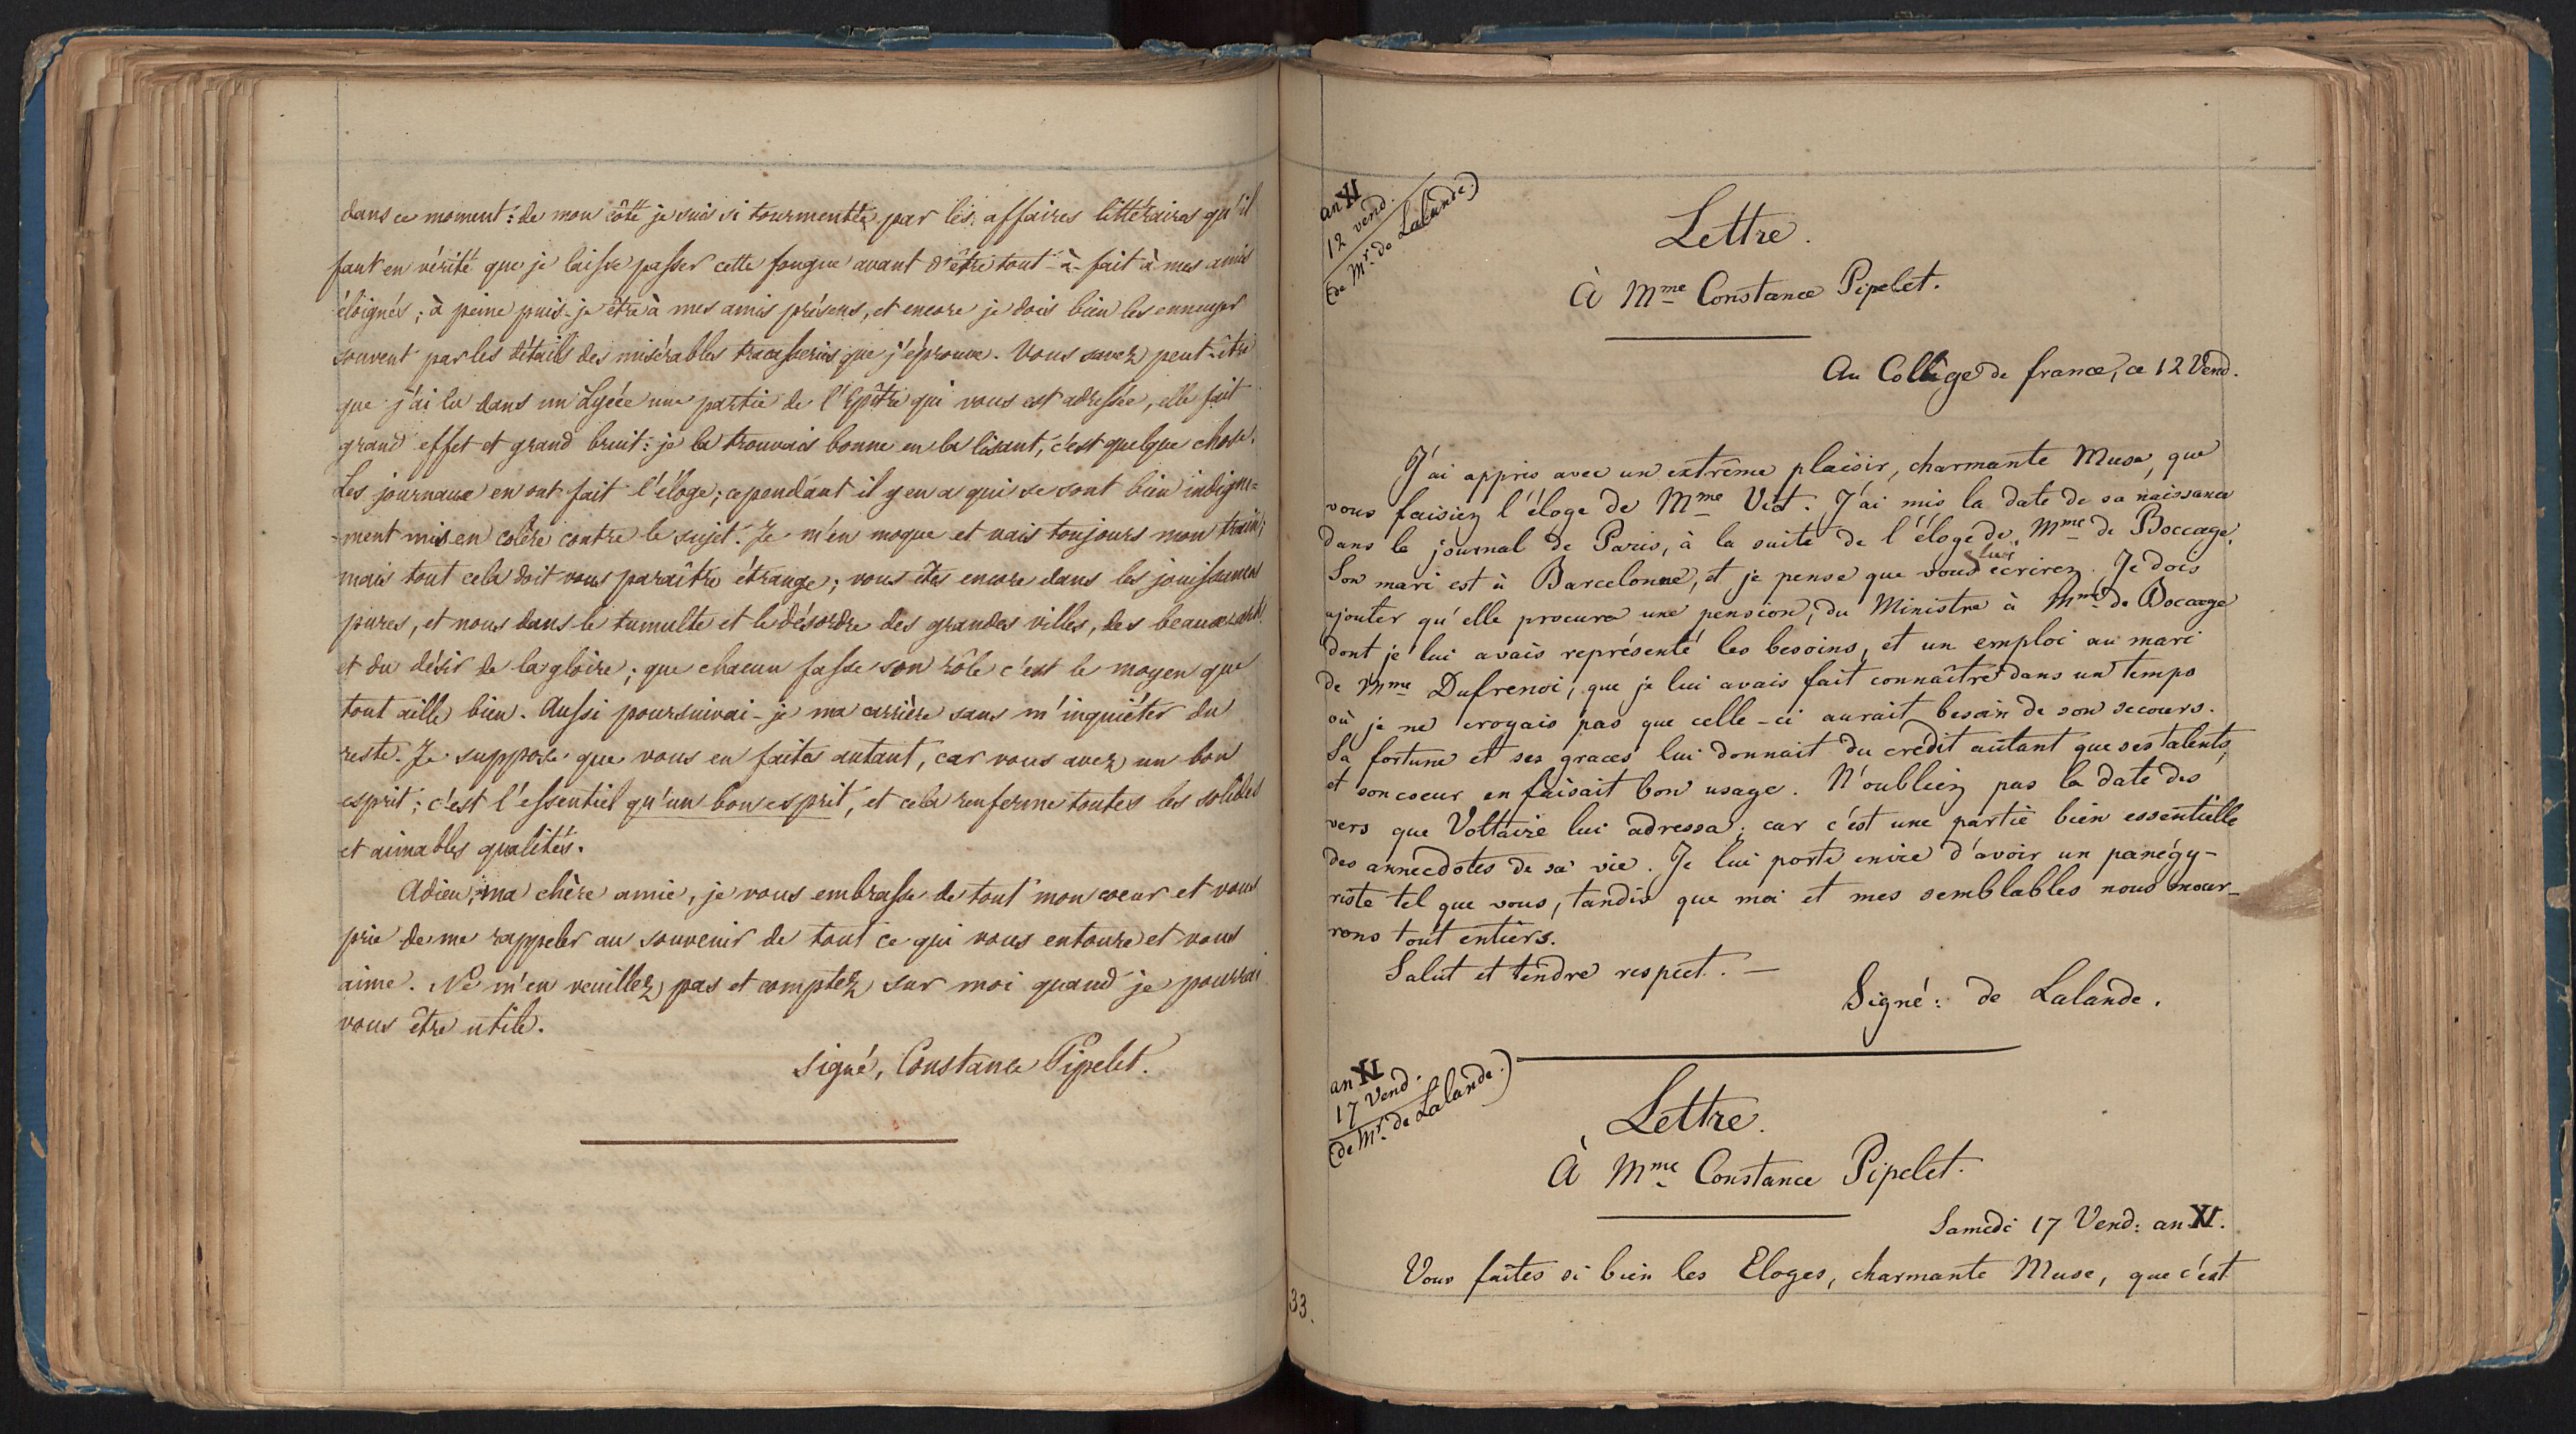 dans ce moment : de mon côté je suis si tourmentée par les affaires littéraires qu'il
faut en vérité que je laisse passer cette fougue avant d'être tout-à-fait à mes amis
éloignés ; à peine puis-je être à mes amis présens, et encore je dois bien les ennuyer
souvent par les détails des misérables tracasseries que j'éprouve. Vous savez peut-être
que j'ai lu dans un Lycée une partie de l'Epître qui vous est adressée, elle fait
grand effet et grand bruit : je la trouvais bonne en la lisant, c'est quelque chose.
Les journaux en ont fait l'éloge ; cependant il y en a qui se sont bien indigne=
=ment mis en colère contre le sujet. Je m'en moque et vais toujours mon train ;
mais tout cela doit vous paraître étrange ; vous êtes encore dans les jouissances
pures, et nous dans le tumulte et le désordre des grandes villes, des beaux arts
et du désir de la gloire ; que chacun fasse son rôle c'est le moyen que
tout aille bien. Aussi poursuivai-je ma carrière sans m'inquiéter du
reste. Je suppose que vous en faites autant, car vous avez un bon
esprit ; c'est l'essentiel qu'un bon esprit, et cela renferme toutes les solides
et aimables qualités.
Adieu, ma chère amie, je vous embrasse de tout mon coeur et vous
prie de me rappeler au souvenir de tout ce qui vous entoure et vous
aime. Ne m'en veuillez pas et comptez sur moi quand je pourrai
vous être utile.
Signé, Constance Pipelet.
an XI
12 vend.
(de Mr. de Lalande)
Lettre.
À Mme Constance Pipelet.
Au Collège de france, ce 12 Vend.
J'ai appris avec un extrême plaisir, charmante Muse, que
vous faisiez l'éloge de Mme Viot. J'ai mis la date de sa naissance
dans le journal de Paris, à la suite de l'éloge de Mme de Boccage.
Son mari est à Barcelonne, et je pense que vous lui écrirez. Je dois
ajouter qu'elle procura une pension, du Ministre à Mme de Bocage
dont je lui avais représenté les besoins, et un emploi au mari
de Mme Dufrenoi, que je lui avais fait connaître dans un temps
où je ne croyais pas que celle-ci aurait besoin de son secours.
Sa fortune et ses graces lui donnait du crédit autant que ses talents,
et son coeur en faisait bon usage. N'oubliez pas la date des
vers que Voltaire lui adressa ; car c'est une partie bien essentielle
des annecdotes de sa vie. Je lui porte envie d'avoir un panégy-
riste tel que vous, tandis que moi et mes semblables nous mour-
rons tout entiers.
Salut et tendre respect. —
Signé : de Lalande.
an XI
17 Vend.
(de Mr. de Lalande.)
Lettre.
À Mme Constance Pipelet.
Samedi 17 Vend: an XI.
Vous faites si bien les Eloges, charmante Muse, que c'est
33.